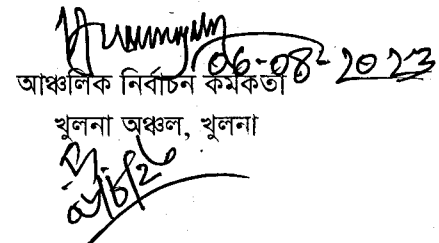 06-08-2023
আঞ্চলিক নির্বাচন কর্মকর্তা
খুলনা অঞ্চল, খুলনা